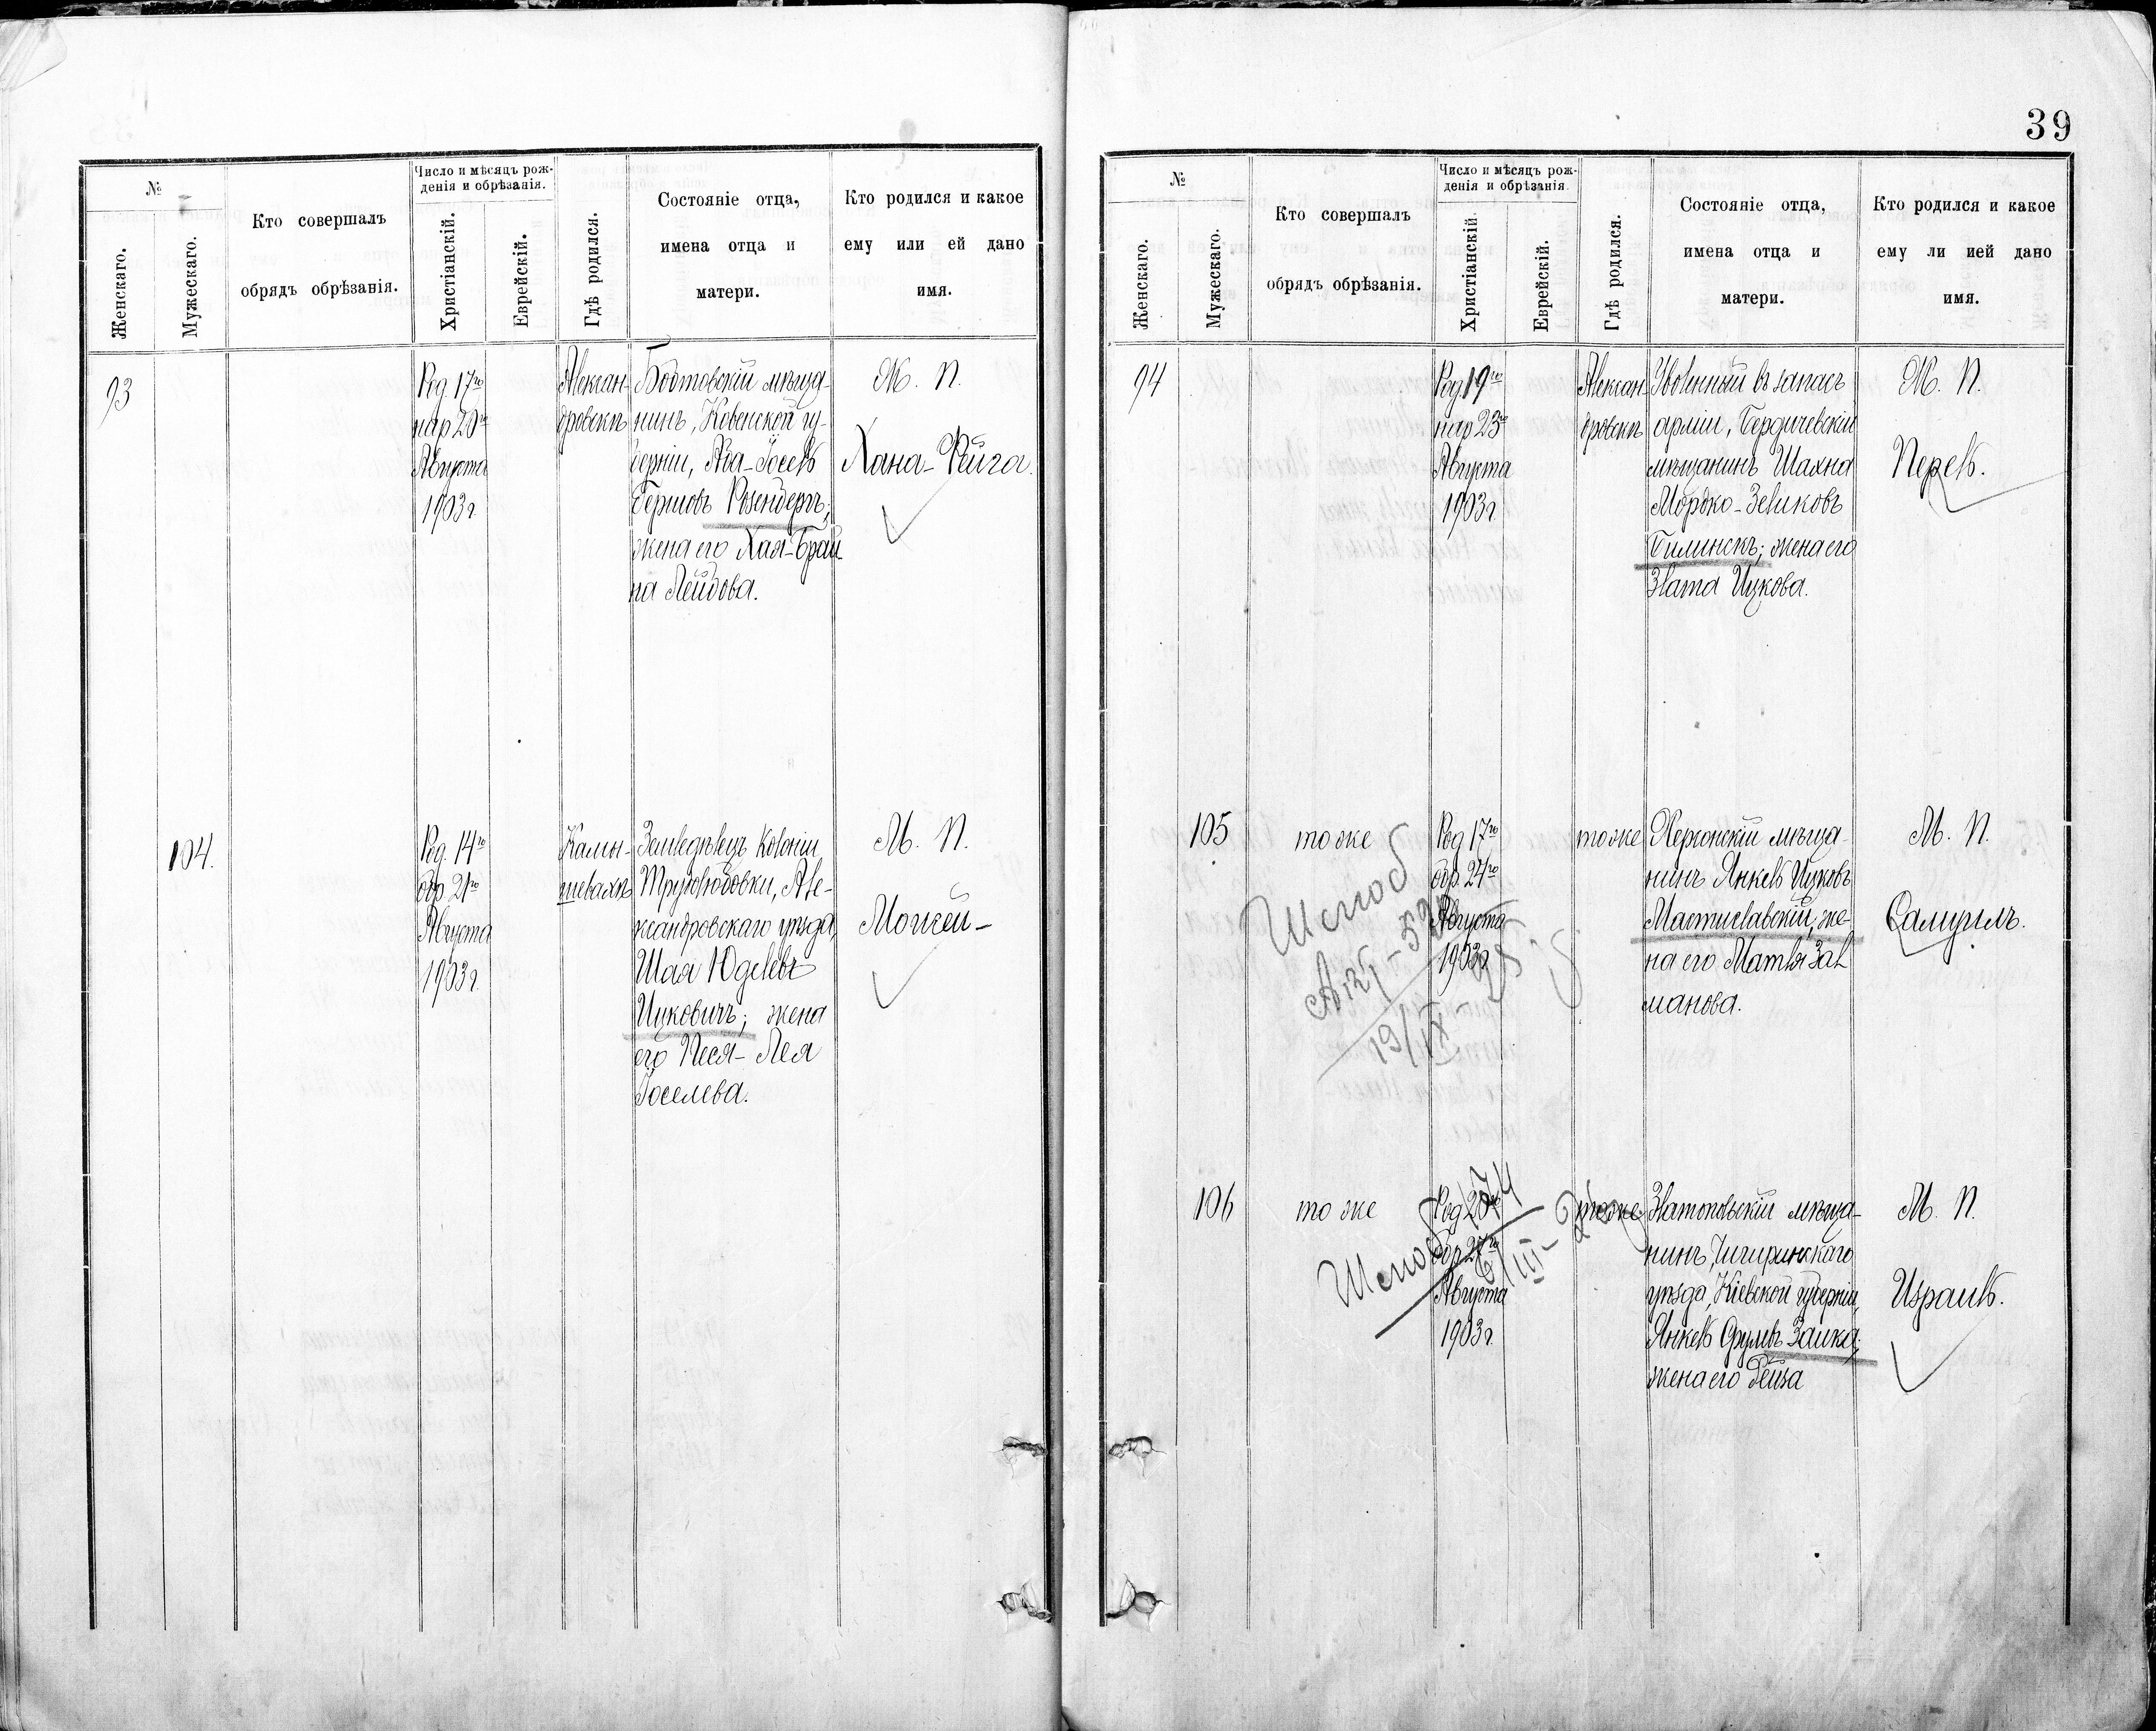 39
№
Женскаго.
Мужескаго.
Кто совершалъ
обрядъ обрѣзанія.
Число и мѣсяцъ рож-
денія и обрѣзанія.
Христіанскій.
Еврейскій.
Гдѣ родился.
Состояніе отца,
имена отца и
матери.
Кто родился и какое
ему или ей дано
имя.
93
Род. 17го
нар 20го
Августа
1903 г.
Алексан-
дровскъ
мѣща-
нинъ, Ковенской гу-
берніи, Аба-Іосель
Гершовъ
жена его Хая-Брай-
на Лейбова.
М. П.
Хана-Фейга.
104.
Род. 14го
обр. 21го
Августа
1903 г.
Камы-
шевахъ
Земледѣлецъ колоніи
Трудолюбовки, Але-
ксандровскаго уѣзда,
Шая Юделевъ
Ицковичъ; жена
его Песя-Лея
Іоселева.
М. П.
Моисей-
№
Женскаго.
Мужескаго.
Кто совершалъ
обрядъ обрѣзанія.
Число и мѣсяцъ рож-
денія и обрѣзанія
Христіанскій.
Еврейскій.
Гдѣ родился.
Состояніе отца,
имена отца и
матери.
Кто родился и какое
ему ли ией дано
имя.
94
Род. 19го
нар 23го
Августа
1903 г.
Алексан-
дровскъ
Уволенный въ запасъ
арміи, Бердичевскій
мѣщанинъ Шахна
Мордко-Зеликовъ
Билинскъ; жена его
Злата Ицкова.
М. П.
Перель.
105
тоже
Род 17го
обр. 24го
Августа
1903 г.
тоже
Херсонскій мѣща-
нинъ Янкель Ицковъ
Мастиславскій, же-
на его Матля Зал
манова.
М. П.
Самуилъ.
19/IX
106
тоже
Род 20го
обр 27го
Августа
1903 г.
тоже
Златопольскій мѣща-
нинъ, Чигиринскаго
уѣзда, Кіевской губерніи,
Янкель Срулевъ Заика;
жена его Рейза
М. П.
Израиль.